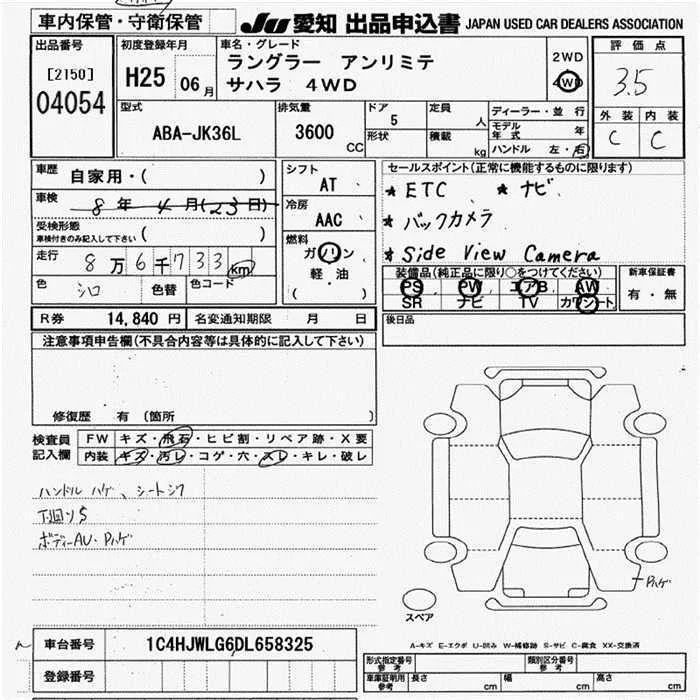 車内保管・守衛保管
JU 愛知 出品申込書 JAPAN USED CAR DEALERS ASSOCIATION
出品番号
[2150]
04054
初度登録年月
H25 06月
車名・グレード
ラングラー アンリミテ
サハラ 4WD
2WD
4WD
評価点
3.5
外装 内装
C C
型式
ABA-JK36L
排気量
3600
CC
ドア
5
形状
定員
人
積載
kg
ディーラー・並行
モデル年式 年
ハンドル 左・右
車歴 自家用・( )
車検 8年4月(23日)
受検形態
車検付きのみ記入して下さい ( )
走行 8万6千733km
色 シロ 色替 色コード
シフト
AT
冷房
AAC
燃料
ガソリン
軽・油
( )
セールスポイント(正常に機能するものに限ります)
* ETC * ナビ
* バックカメラ
* Side View Camera
装備品(純正品に限り○をつけてください)
PS PW エアB AW
SR ナビ TV カワシート
新車保証書
有・無
後日品
R券 14,840円 名変通知期限 月 日
注意事項申告欄(不具合内容等は具体的に記入して下さい)
修復歴 有 〔箇所 〕
検査員記入欄
FW キズ・飛石・ヒビ割・リペア跡・X要
内装 キズ・汚レ・コゲ・穴・スレ・キレ・破レ
ハンドル ハゲ、シートシワ
下廻りS
ボディーAU・Pハゲ
Pハゲ
スペア
A-キズ E-エクボ U-凹み W-補修跡 S-サビ C-腐食 XX-交換済
車台番号 1C4HJWLG6DL658325
登録番号
形式指定番号 参考
類別区分番号 参考
車庫証明用参考 長さ cm 幅 cm 高さ cm